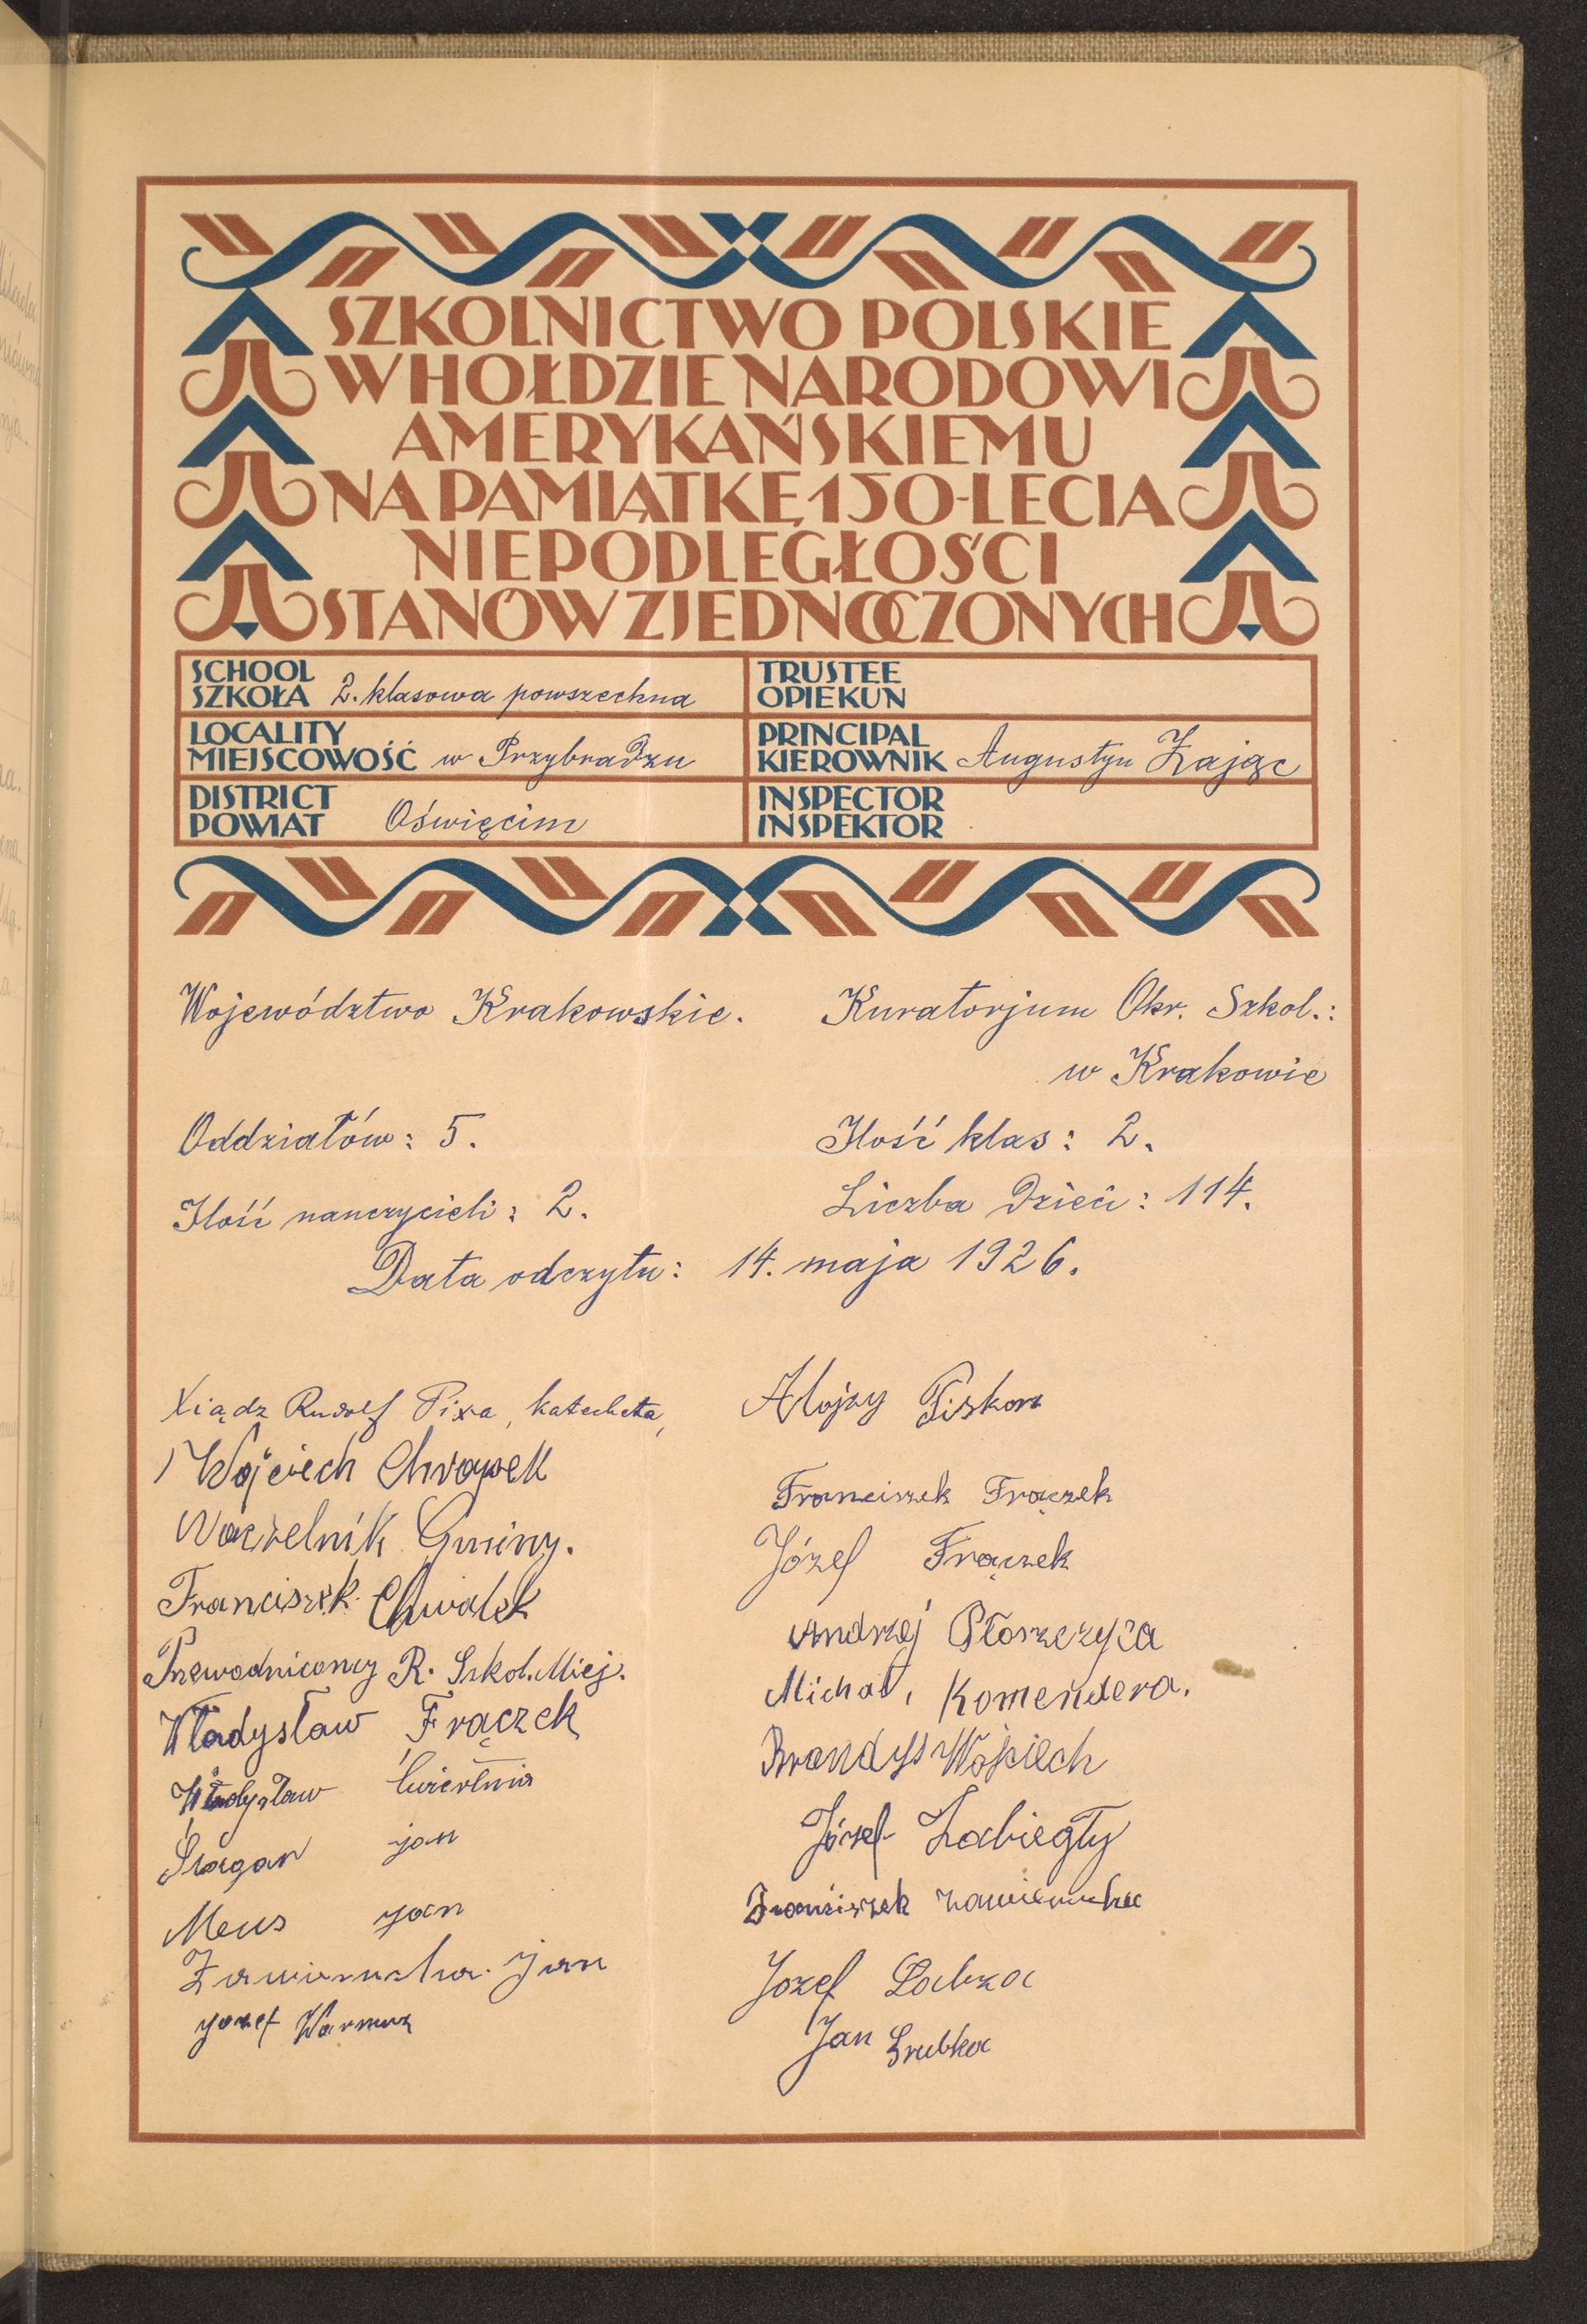 SZKOLNICTWO POLSKIE
W HOŁDZIE NARODOWI
AMERYKAŃSKIEMU
NA PAMIĄTKĘ 150-LECIA
NIEPODLEGŁOŚCI
STANÓW ZJEDNOCZONYCH
SCHOOL
SZKOŁA 2. klasowa powszechna
TRUSTEE
OPIEKUN
LOCALITY
MIEJSCOWOŚĆ w Przybradzu
PRINCIPAL
KIEROWNIK Augustyn Zając
DISTRICT
POWIAT Oświęcim
INSPECTOR
INSPEKTOR
Województwo Krakowskie. Kuratorjum Okr. Szkol.:
w Krakowie
Oddziałów: 5. Ilość klas: 2.
Ilość nauczycieli: 2. Liczba dzieci: 114.
Data odczytu: 14. maja 1926.
Xiądz Rudolf Pixa, katecheta,
Wojciech Chrapek
Naczelnik Gminy.
Franciszek Chwałek
Przewodniczący R. Szkol. Miej.
Władysław Frączek
Władysław Ćwiertnia
Jan
Meus Jan
Zawierucha Jan
Józef Warmuz
Alojzy Piskorz
Franciszek Frączek
Józef Frączek
Andrzej Płoszczyca
Michał, Komendera.
Brandys Wojciech
Józef Zabiegły
Franciszek Zawierucha
Jozef Łabza
Jan Srubka